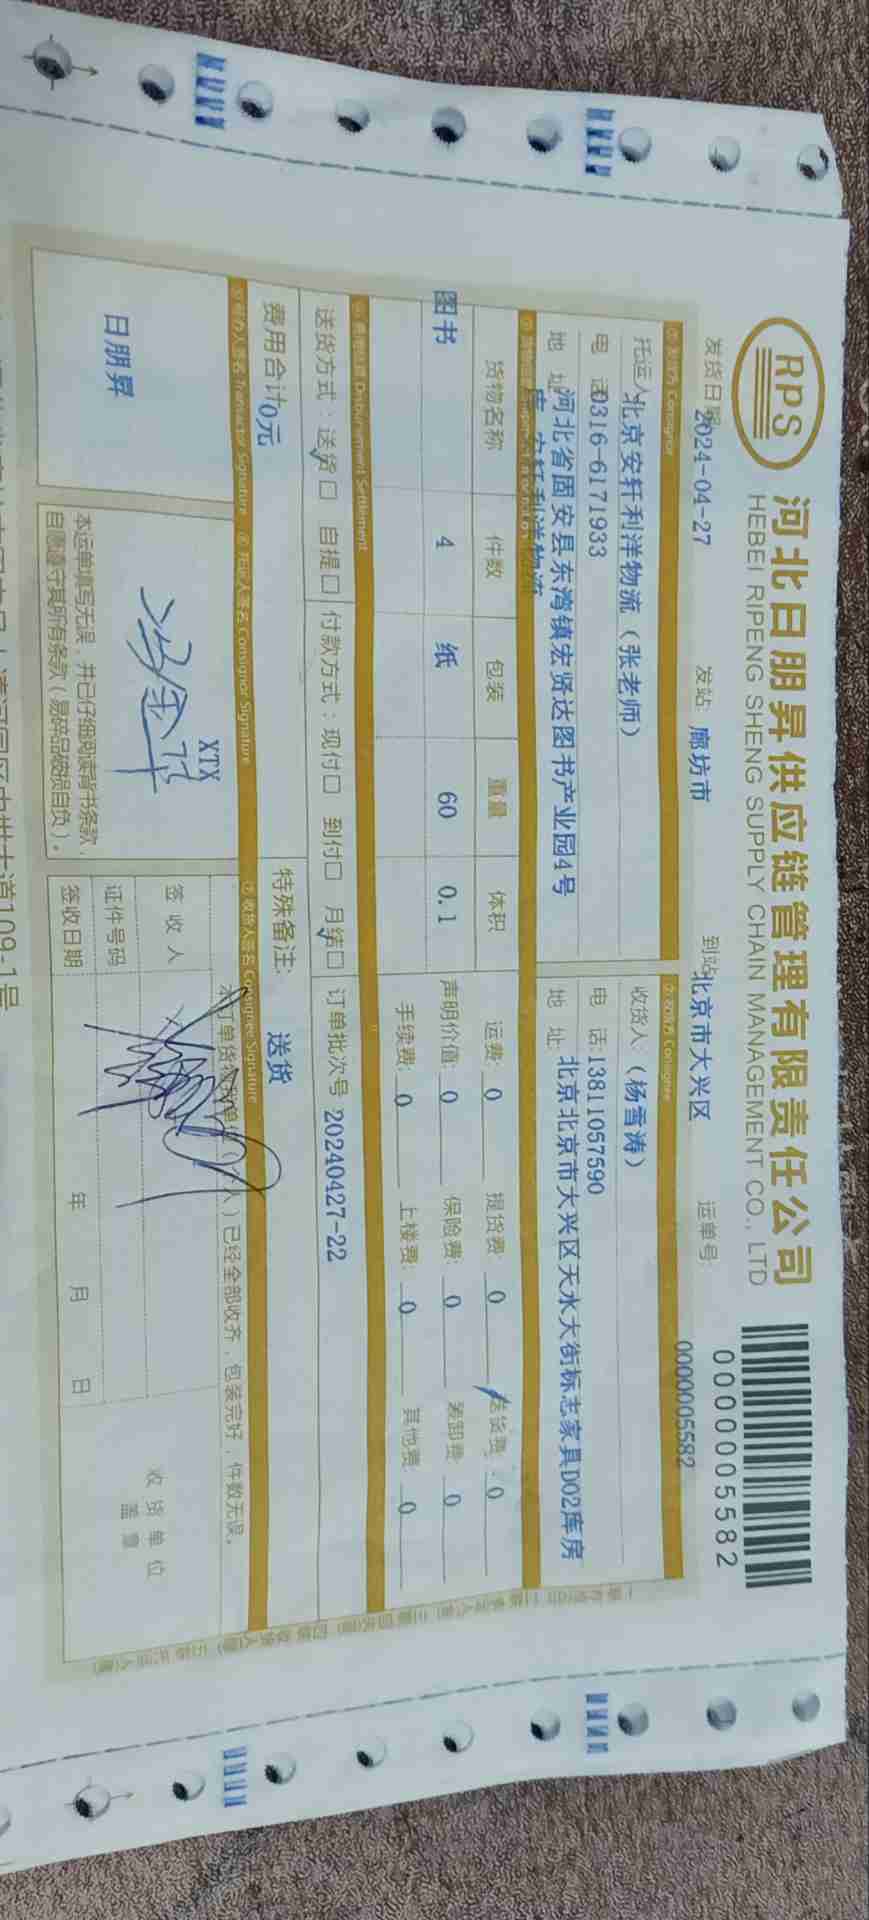 RPS
河北日朋昇供应链管理有限责任公司
HEBEI RIPENG SHENG SUPPLY CHAIN MANAGEMENT CO., LTD
0000005582
发货日期 2024-04-27 发站: 廊坊市 到站: 北京市大兴区 运单号: 0000005582
Consignor
Consignee
托运人 北京安轩利洋物流（张老师）
收货人: （杨雪涛）
电 话 0316-6171933
电 话: 13811057590
地 址 河北省固安县东湾镇宏贤达图书产业园4号
库 安轩利洋物流
地 址: 北京北京市大兴区天水大街标志家具D02库房
货物名称 件数 包装 重量 体积
图书 4 纸 60 0.1
运费: 0 提货费: 0 送货费: 0
声明价值: 0 保险费: 0 装卸费 0
手续费: 0 上楼费: 0 其他费: 0
Disbursement Settlement
送货方式: 送货 自提 付款方式: 现付 到付 月结 订单批次号 20240427-22
费用合计 0元
特殊备注: 送货
Transactor Signature
托运人签名 Consignor Signature
收货人签名 Consignee Signature
日朋昇
XTX
本运单填写无误，并已仔细阅读背书条款，
自愿遵守其所有条款（易碎品破损自负）。
已经全部收齐，包装完好，件数无误。
签收人
证件号码
签收日期 年 月 日
收货单位
盖章
道109-1号